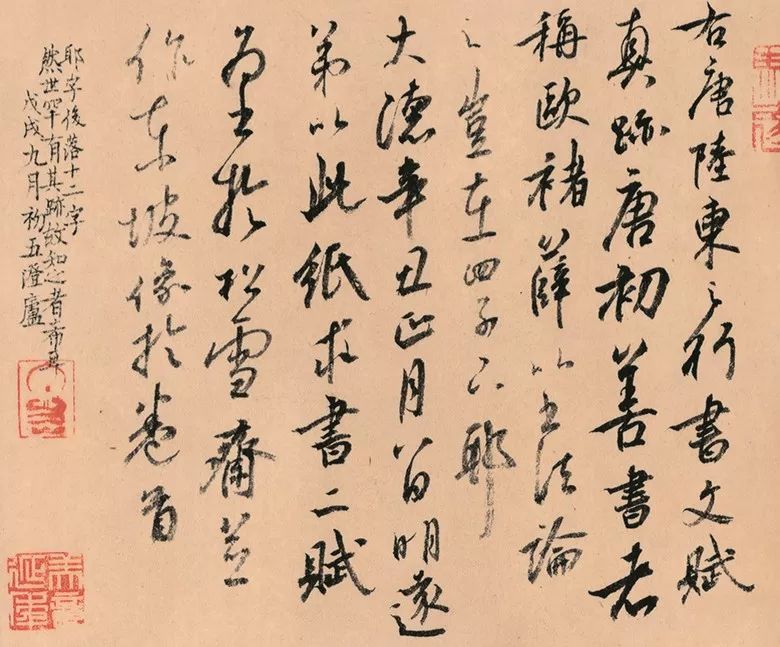 右唐陸東之行書文賦
真跡唐初善書者
稱歐褚薛以書法論
之豈在四子下耶
大德辛丑正月八日明遠
弟以此紙求書二賦
為書於松雪齋並
作東坡像於卷首
耶字後落十二字
然世罕有其跡故知之者希耳
戊戌九月初五澄廬